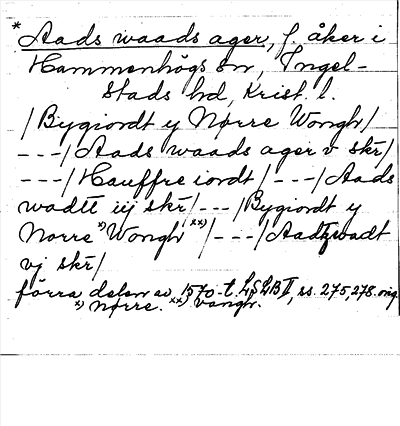 * Aads waads ager, f. åker i
Hammenhögs sn, Ingel-
stads hd, Krist. l.
/Bygiordt y Nørre Wongh/
---/Aads waads ager v skr/
---/Hauffre iordt/---/Aads
wadtt iij skr/---/Bygiordt y
Norre x) Wongh xx)/---/Aadtzwadt
vj skr/
förra delen av 1570-t. LSLB II, ss. 275, 278. orig.
x) Nørre. xx) vangh.